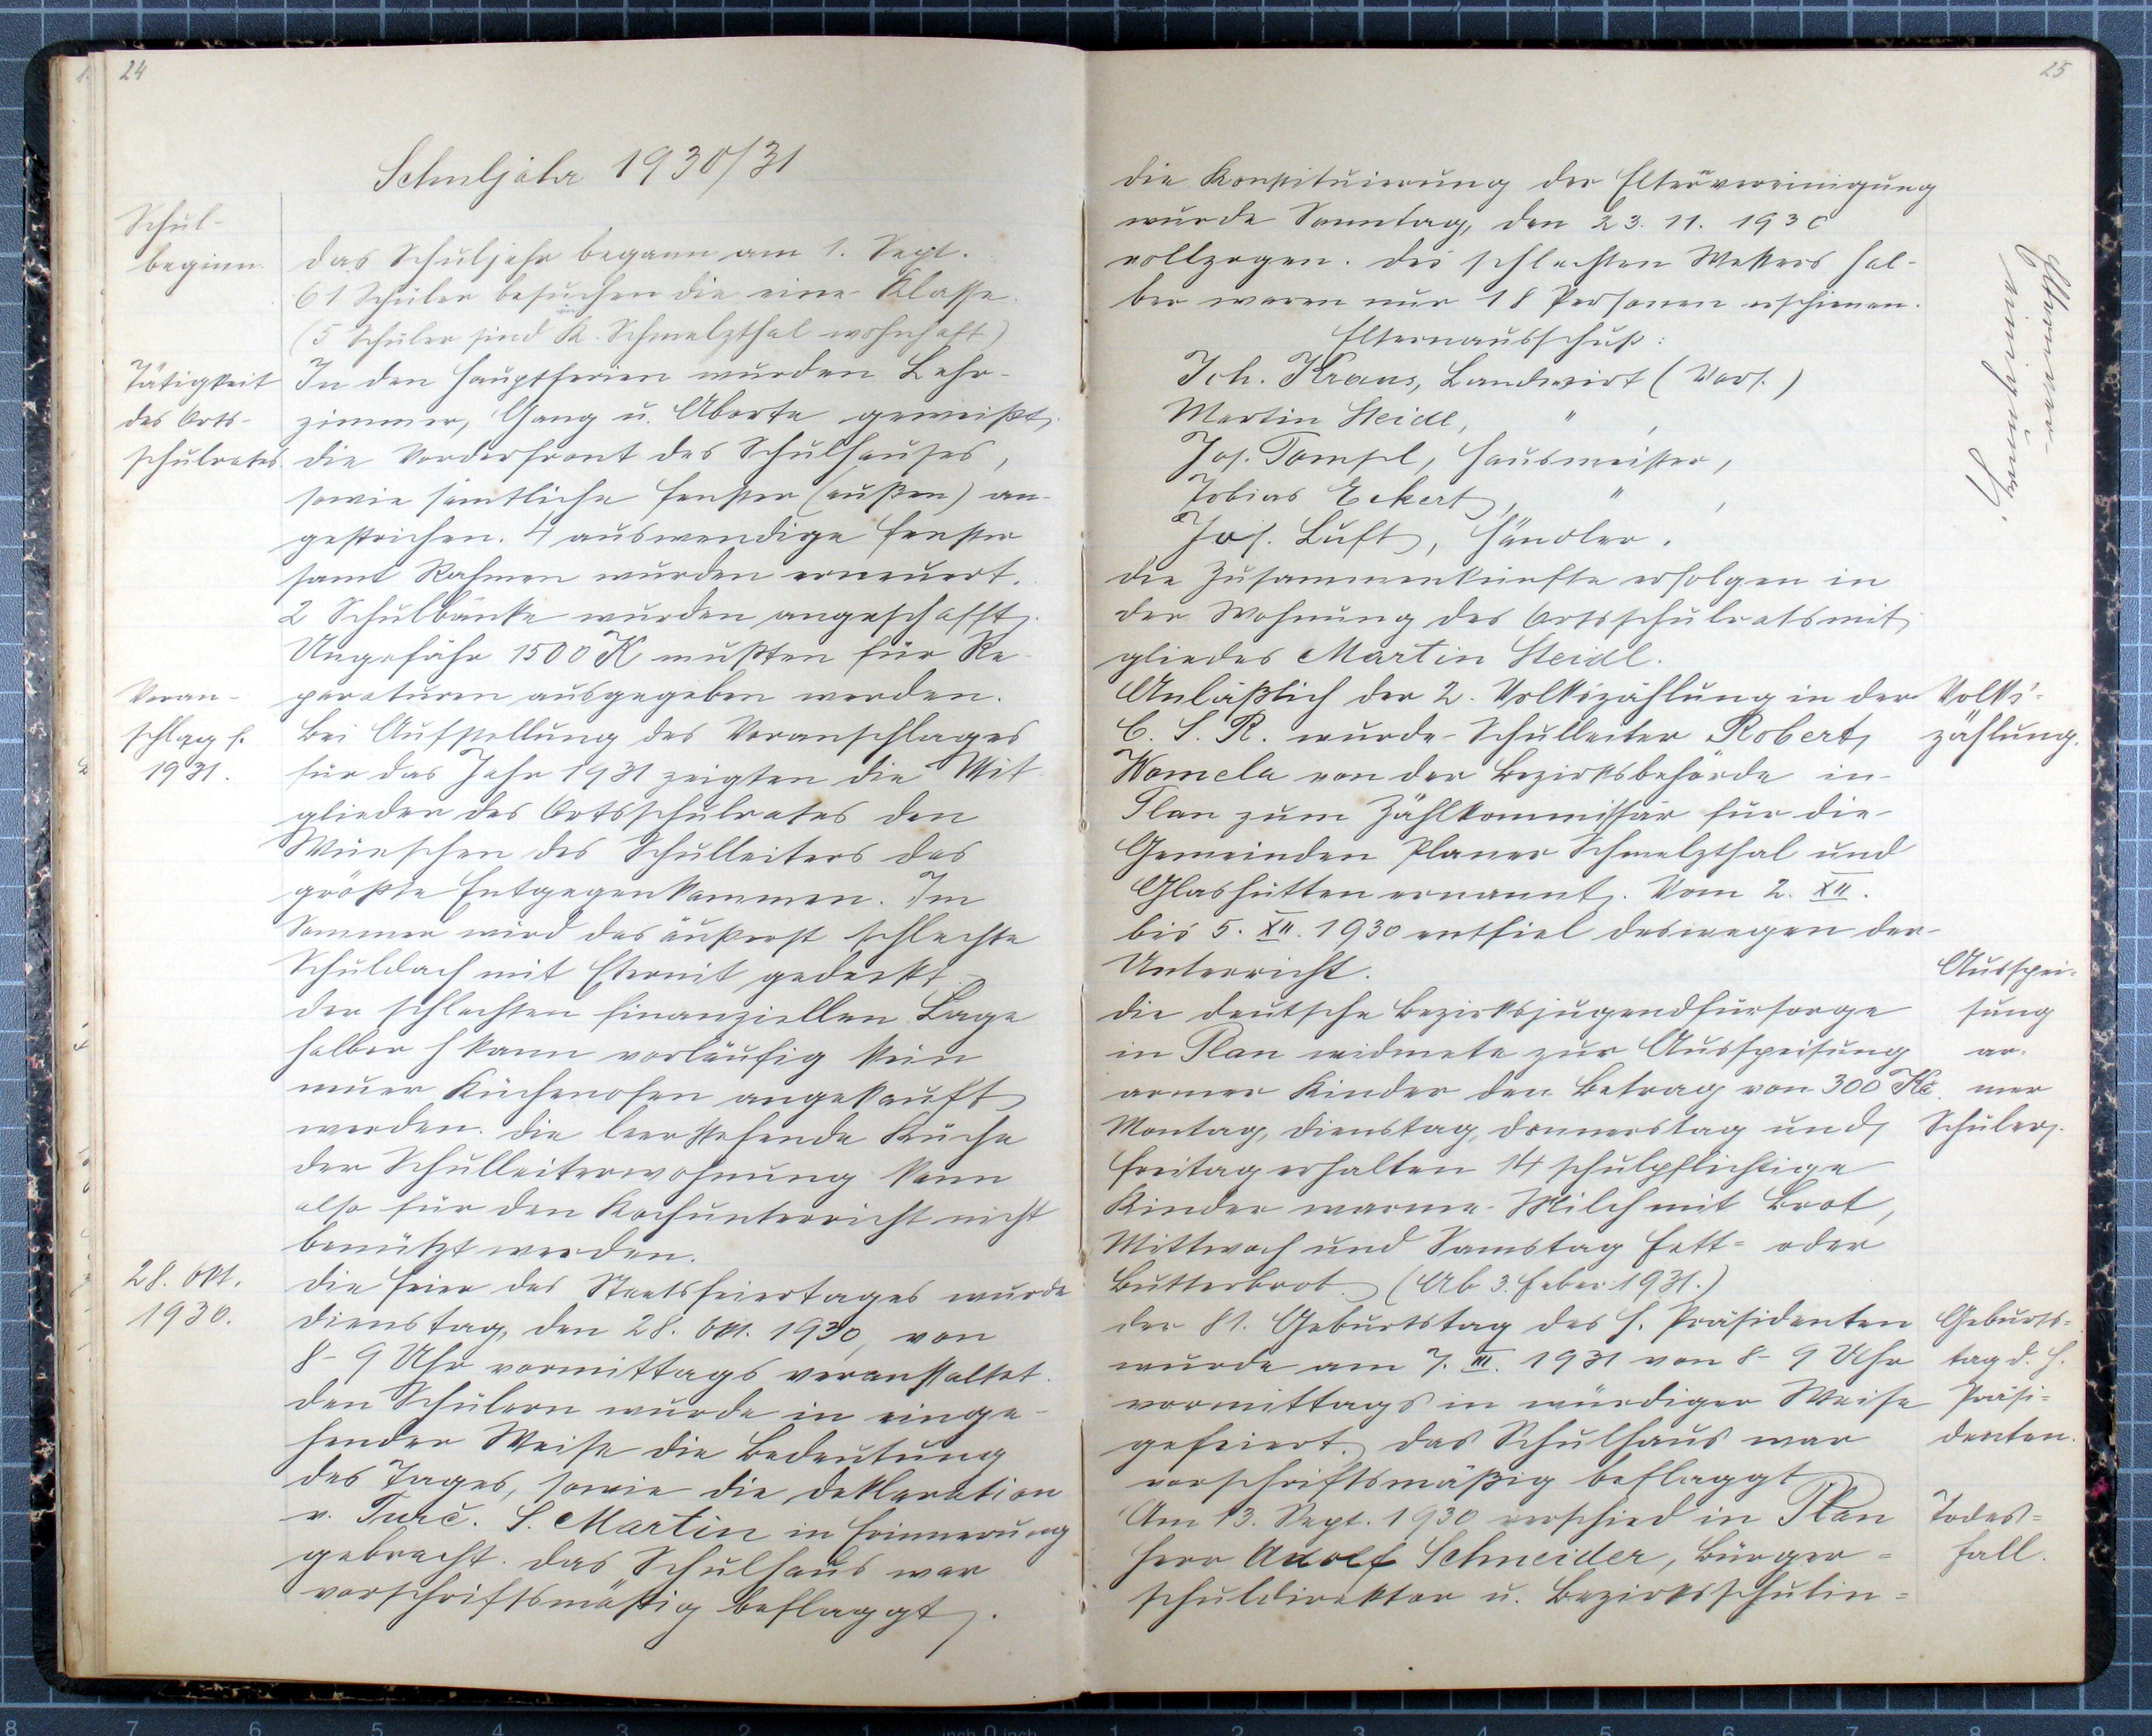 24
Schuljahr 1930/31
Schul-
beginn.
Das Schuljahr begann am 1. Sept.
61 Schüler besuchen die eine Klasse.
(5 Schüler sind K. Schmelzthal wohnhaft)
Tätigkeit
des Orts-
schulrates.
In den Hauptferien wurden Lehr-
zimmer, Gang u. Aborte geweißt,
die Vorderfront des Schulhauses,
sowie sämtliche Fenster (außen) an-
gestrichen. 4 auswendige Fenster
samt Rahmen wurden erneuert.
2 Schulbänke wurden angeschafft.
Ungefähr 1500 K mußten für Re-
paraturen ausgegeben werden.
Voran-
schlag f.
1931.
Bei Aufstellung des Voranschlages
für das Jahr 1931 zeigten die Mit-
glieder des Ortsschulrates den
Wünschen des Schulleiters das
größte Entgegenkommen. Im
Sommer wird das äußerst schlechte
Schuldach mit Eternit gedeckt.
Der schlechten finanziellen Lage
halber kann vorläufig kein
neuer Küchenofen angekauft
werden. Die leerstehende Küche
der Schulleiterwohnung kann
also für den Kochunterricht nicht
benützt werden.
28. Okt.
1930.
Die Feier des Staatsfeiertages wurde
Dienstag, den 28. Okt. 1930, von
8-9 Uhr vormittags veranstaltet.
Den Schülern wurde in einge-
hender Weise die Bedeutung
des Tages, sowie die Deklaration
v. Turč. S. Martin in Erinnerung
gebracht. Das Schulhaus war
vorschriftsmäßig beflaggt.
25
Die Konstituierung der Elternvereinigung
wurde Sonntag, den 23. 11. 1930
vollzogen. Des schlechten Wetters hal-
ber waren nur 18 Personen erschienen.
Elternver-
einigung.
Elternausschuß:
Joh. Kraus, Landwirt (Vors.)
Martin Steidl, " ,
Jos. Tompl, Hausmeister,
Tobias Eckert, " ,
Jos. Luft, Händler.
Die Zusammenkünfte erfolgen in
der Wohnung des Ortsschulratsmit-
gliedes Martin Steidl.
Anläßlich der 2. Volkszählung in der
Č. S. R. wurde Schulleiter Robert
Womela von der Bezirksbehörde in
Plan zum Zählkommissär für die
Gemeinden Planer Schmelzthal und
Glashütten ernannt. Vom 2. XII.
bis 5. XII. 1930 entfiel deswegen der
Unterricht.
Volks-
zählung.
Die deutsche Bezirksjugendfürsorge
in Plan widmete zur Ausspeisung
armer Kinder den Betrag von 300 Kč.
Montag, Dienstag, Donnerstag und
Freitag erhalten 14 schulpflichtige
Kinder warme Milch mit Brot,
Mittwoch und Samstag Fett- oder
Butterbrot. (Ab 3. Feber 1931.)
Ausspei-
sung
ar-
mer
Schüler.
Der 81. Geburtstag des H. Präsidenten
wurde am 7. III. 1931 von 8-9 Uhr
vormittags in würdiger Weise
gefeiert. Das Schulhaus war
vorschriftsmäßig beflaggt
Geburts-
tag d. H.
Präsi-
denten.
Am 13. Sept. 1930 verschied in Plan
Herr Adolf Schneider, Bürger-
schuldirektor u. Bezirksschulin-
Todes-
fall.